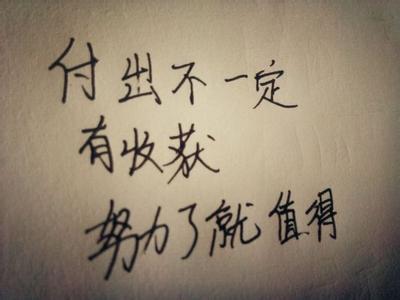 付出不一定
有收获
努力了就值得